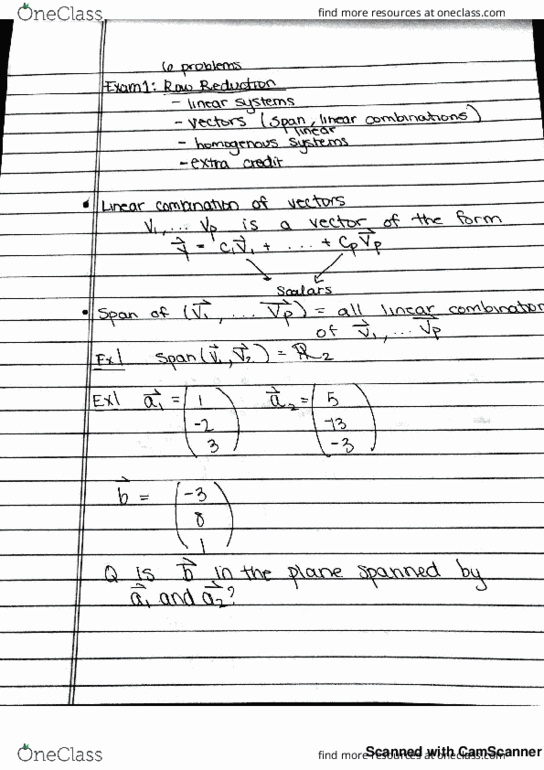 OneClass
find more resources at oneclass.com
6 problems
Exam 1: Row Reduction
- linear systems
- vectors (span, linear combinations)
linear
- homogenous systems
- extra credit
• Linear combination of vectors
V₁, ... Vp is a vector of the form
v⃗ = c₁v⃗₁ + ... + cpv⃗p
Scalars
• Span of (v⃗₁, ... v⃗p) = all linear combination
of v⃗₁, ... v⃗p
Ex1 Span(v⃗₁, v⃗₂) = ℝ₂
Ex1 a⃗₁ = ( 1 a⃗₂ = ( 5
-2 -13
3 ) -3 )
b⃗ = ( -3
8
1 )
Q is b⃗ in the plane spanned by
a⃗₁ and a⃗₂?
Scanned with CamScanner
OneClass
find more resources at oneclass.com